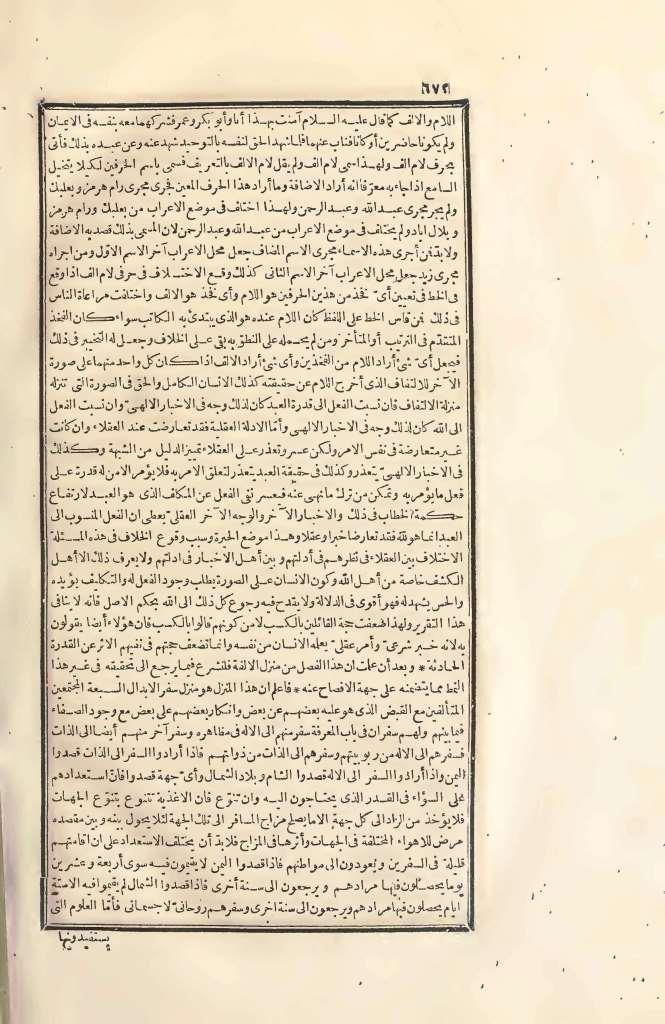 ٦٧٢
اللام والالف كما قال عليه السلام آمنت بهذا أنا وأبو بكر وعمر فشركهما معه بنفسه فى الايمان
ولم يكونا حاضرين أو كانا فناب عنهما فلما شهد الحق لنفسه بالتوحيد شهد عنه وعن عبده بذلك فأتى
بحرف لام الف ولهذا سمى لام الف ولم يقل لام الالف بالتعريف فسمى باسم الحرفين لكيلا يتخيل
السامع اذا جاء به معرّفا انه أراد الاضافة وما أراد هذا الحرف المعين فجرى مجرى رام هرمز وبعلبك
ولم يجر مجرى عبد الله وعبد الرحمن ولهذا اختلف فى موضع الاعراب من بعلبك ورام هرمز
وبلال اباد ولم يختلف فى موضع الاعراب من عبد الله وعبد الرحمن لان المسمى بذلك قصد به الاضافة
ولابدّ فمن أجرى هذه الاسماء مجرى الاسم المضاف جعل محل الاعراب آخر الاسم الاوّل ومن اجراه
مجرى زيد جعل محل الاعراب آخر الاسم الثانى كذلك وقع الاختلاف فى حرفى لام الف اذا وقع
فى الخط فى تعيين أىّ فخذ من هذين الحرفين هو اللام وأى فخذ هو الالف واختلفت مراعاة الناس
فى ذلك فمن قاس الخط على اللفظ كان اللام عنده هو الذى يبتدئ به الكاتب سواء كان الفخذ
المتقدّم فى الترتيب أو المتأخر ومن لم يحمله على النطق به بقى على الخلاف وجعل له التخيير فى ذلك
فيجعل أىّ شئ أراد اللام من الفخذين وأى شئ أراد الالف اذا كان كل واحد منهما على صورة
الآخر للالتفاف الذى أخرج اللام عن حقيقته كذلك الانسان الكامل والحق فى الصورة التى تنزله
منزلة الالتفاف فان نسبت الفعل الى قدرة العبد كان لذلك وجه فى الاخبار الالهىّ وان نسبت الفعل
الى الله كان لذلك وجه فى الاخبار الالهى وأمّا الادلة العقلية فقد تعارضت عند العقلاء وان كانت
غير متعارضة فى نفس الامر ولكن عسر وتعذر على العقلاء تمييز الدليل من الشبهة وكذلك
فى الاخبار الالهىّ يتعذر وكذلك فى حقيقة العبد يتعذر لتعلق الامر به فلا يؤمر الا من له قدرة على
فعل ما يؤمر به وتمكن من ترك ما نهى عنه فيعسر نفى الفعل عن المكلف الذى هو العبد لارتفاع
حكمة الخطاب فى ذلك والاخبار الآخر والوجه الآخر العقلىّ يعطى ان الفعل المنسوب الى
العبد انما هو لله فقد تعارضا خبرا وعقلا وهذا موضع الحيرة وسبب وقوع الخلاف فى هذه المسئلة
الاختلاف بين العقلاء فى نظرهم فى أدلتهم وبين أهل الاخبار فى ادلتهم ولا يعرف ذلك الا أهل
الكشف خاصة من أهل الله وكون الانسان على الصورة يطلب وجود الفعل له والتكليف يؤيده
والحس يشهد له فهو أقوى فى الدلالة ولا يقدح فيه رجوع كل ذلك الى الله بحكم الاصل فانه لا ينافى
هذا التقرير ولهذا ضعفت حجة القائلين بالكسب لا من كونهم قالوا بالكسب فان هؤلاء أيضا يقولون
به لانه خبر شرعىّ وأمر عقلىّ يعلمه الانسان من نفسه وانما تضعف حجتهم فى نفيهم الاثر عن القدرة
الحادثة * وبعد أن علمت ان هذا الفصل من منزل الالفة فلنشرع فيما يرجع الى تحقيقه فى غير هذا
النمط مما يتضمنه على جهة الافصاح عنه * فاعلم ان هذا المنزل هو منزل سفر الابدال السبعة المجتمعين
المتألفين مع القبض الذى هو عليه بعضهم عن بعض وانكار بعضهم على بعض مع وجود الصفاء
فيما بينهم ولهم سفران فى باب المعرفة سفر منهم الى الاله فى مظاهره وسفر آخر منهم أيضا الى الذات
فسفرهم الى الاله من ربوبيتهم وسفرهم الى الذات من ذواتهم فاذا أرادوا السفر الى الذات قصدوا
اليمن واذا أرادوا السفر الى الاله قصدوا الشام وبلاد الشمال وأىّ جهة قصدوا فانّ استعدادهم
على السواء فى القدر الذى يحتاجون اليه وان تنوّع فان الاغذية تتنوع بتنوّع الجهات
فلا يؤخذ من الزاد الى كل جهة الا ما يصلح مزاج المسافر الى تلك الجهة لئلا يحول بينه وبين مقصده
مرض للاهواء المختلفة فى الجهات وأثرها فى المزاج فلا بد أن يختلف الاستعداد على ان اقامتهم
قليلة فى السفرين ويعودون الى مواطنهم فاذا قصدوا اليمن لا يقيمون فيه سوى أربعة وعشرين
يوما يحصلون فيها مرادهم ويرجعون الى سنة أخرى فاذا قصدوا الشمال لم يقيموا فيه الا ستة
ايام يحصلون فيها مرادهم ويرجعون الى سنة اخرى وسفرهم روحانىّ لا جسمانى فأمّا العلوم التى
يستفيدونها